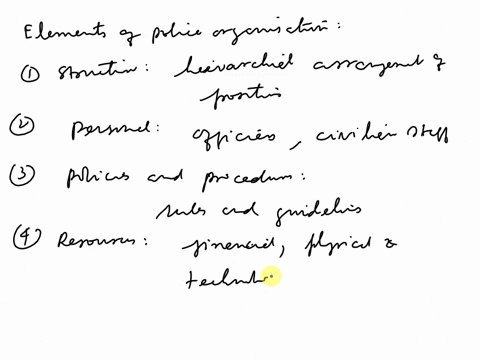 Elements of police organisation:
① Structure: heirarchial arrangement of
positions
② Personnel: officers, civilian staff
③ Policies and procedures:
rules and guidelines
④ Resources: financial, physical &
technolo